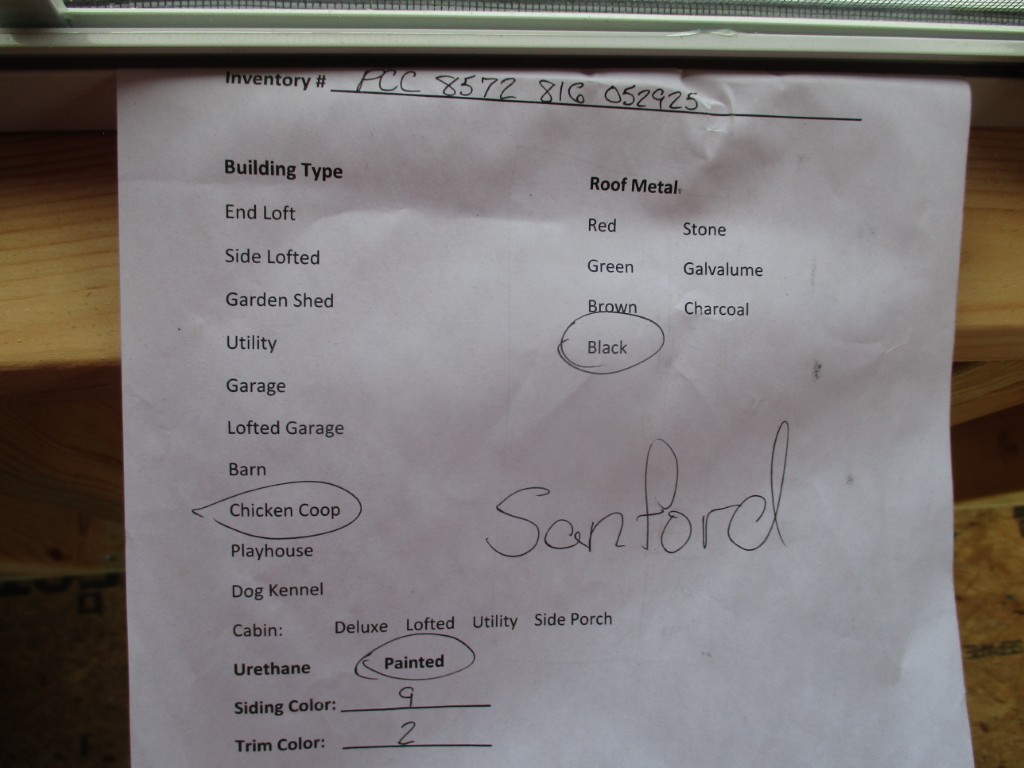 Inventory # PCC 8572 816 052925
Building Type
End Loft
Side Lofted
Garden Shed
Utility
Garage
Lofted Garage
Barn
Chicken Coop
Playhouse
Dog Kennel
Cabin: Deluxe Lofted Utility Side Porch
Urethane Painted
Siding Color: 9
Trim Color: 2
Roof Metal
Red Stone
Green Galvalume
Brown Charcoal
Black
Sanford